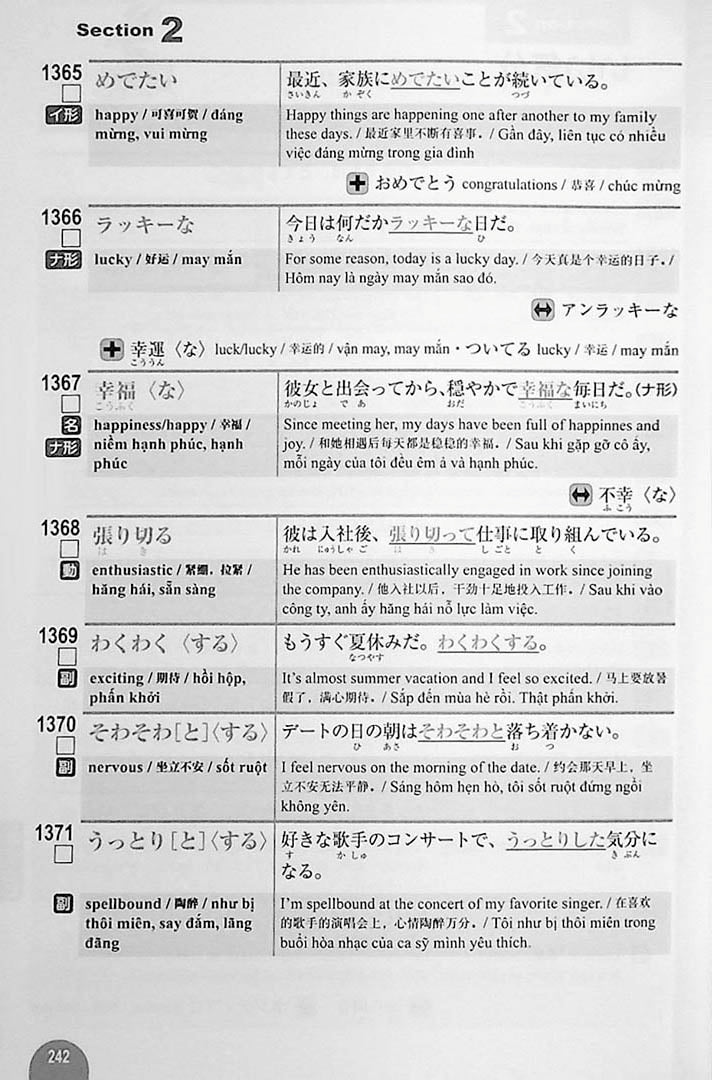 Section 2
1365
めでたい
最近、家族にめでたいことが続いている。
さいきん かぞく つづ
イ形
happy / 可喜可贺 / đáng
mừng, vui mừng
Happy things are happening one after another to my family
these days. / 最近家里不断有喜事。/ Gần đây, liên tục có nhiều
việc đáng mừng trong gia đình
+ おめでとう congratulations / 恭喜 / chúc mừng
1366
ラッキーな
今日は何だかラッキーな日だ。
きょう なん ひ
ナ形
lucky / 好运 / may mắn
For some reason, today is a lucky day. / 今天真是个幸运的日子。/
Hôm nay là ngày may mắn sao đó.
↔ アンラッキーな
+ 幸運〈な〉luck/lucky / 幸运的 / vận may, may mắn・ついてる lucky / 幸运 / may mắn
こううん
1367
幸福〈な〉
こうふく
彼女と出会ってから、穏やかで幸福な毎日だ。(ナ形)
かのじょ であ おだ こうふく まいにち
名
ナ形
happiness/happy / 幸福 /
niềm hạnh phúc, hạnh
phúc
Since meeting her, my days have been full of happinnes and
joy. / 和她相遇后每天都是稳稳的幸福。/ Sau khi gặp gỡ cô ấy,
mỗi ngày của tôi đều êm ả và hạnh phúc.
↔ 不幸〈な〉
ふこう
1368
張り切る
は き
彼は入社後、張り切って仕事に取り組んでいる。
かれ にゅうしゃ ご は き しごと と く
動
enthusiastic / 紧绷，拉紧 /
hăng hái, sẵn sàng
He has been enthusiastically engaged in work since joining
the company. / 他入社以后，干劲十足地投入工作。/ Sau khi vào
công ty, anh ấy hăng hái nỗ lực làm việc.
1369
わくわく〈する〉
もうすぐ夏休みだ。わくわくする。
なつやす
副
exciting / 期待 / hồi hộp,
phấn khởi
It's almost summer vacation and I feel so excited. / 马上要放暑
假了，满心期待。/ Sắp đến mùa hè rồi. Thật phấn khởi.
1370
そわそわ[と]〈する〉
デートの日の朝はそわそわと落ち着かない。
ひ あさ お つ
副
nervous / 坐立不安 / sốt ruột
I feel nervous on the morning of the date. / 约会那天早上，坐
立不安无法平静。/ Sáng hôm hẹn hò, tôi sốt ruột đứng ngồi
không yên.
1371
うっとり[と]〈する〉
好きな歌手のコンサートで、うっとりした気分に
す かしゅ きぶん
なる。
副
spellbound / 陶醉 / như bị
thôi miên, say đắm, lãng
đãng
I'm spellbound at the concert of my favorite singer. / 在喜欢
的歌手的演唱会上，心情陶醉万分。/ Tôi như bị thôi miên trong
buổi hòa nhạc của ca sỹ mình yêu thích.
242